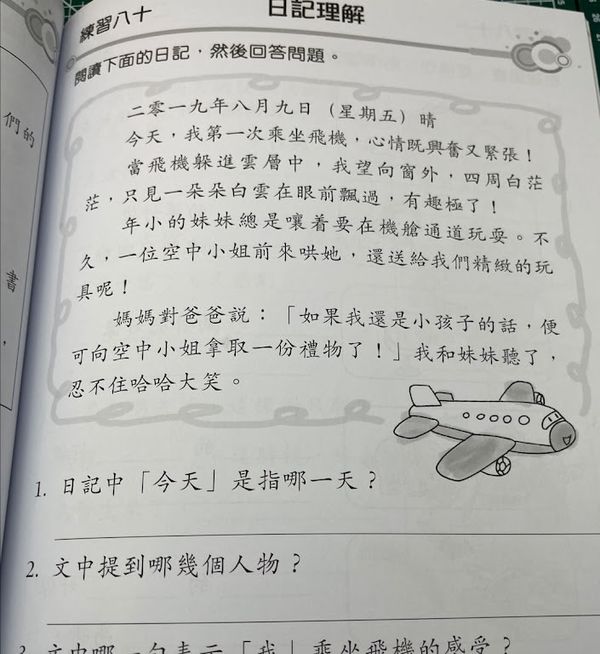 練習八十
日記理解
閱讀下面的日記，然後回答問題。
們的
書
，
二零一九年八月九日（星期五）晴
今天，我第一次乘坐飛機，心情既興奮又緊張！
當飛機躲進雲層中，我望向窗外，四周白茫
茫，只見一朵朵白雲在眼前飄過，有趣極了！
年小的妹妹總是嚷着要在機艙通道玩耍。不
久，一位空中小姐前來哄她，還送給我們精緻的玩
具呢！
媽媽對爸爸說：「如果我還是小孩子的話，便
可向空中小姐拿取一份禮物了！」我和妹妹聽了，
忍不住哈哈大笑。
1. 日記中「今天」是指哪一天？
2. 文中提到哪幾個人物？
3. 文中哪一句表示「我」乘坐飛機的感受？